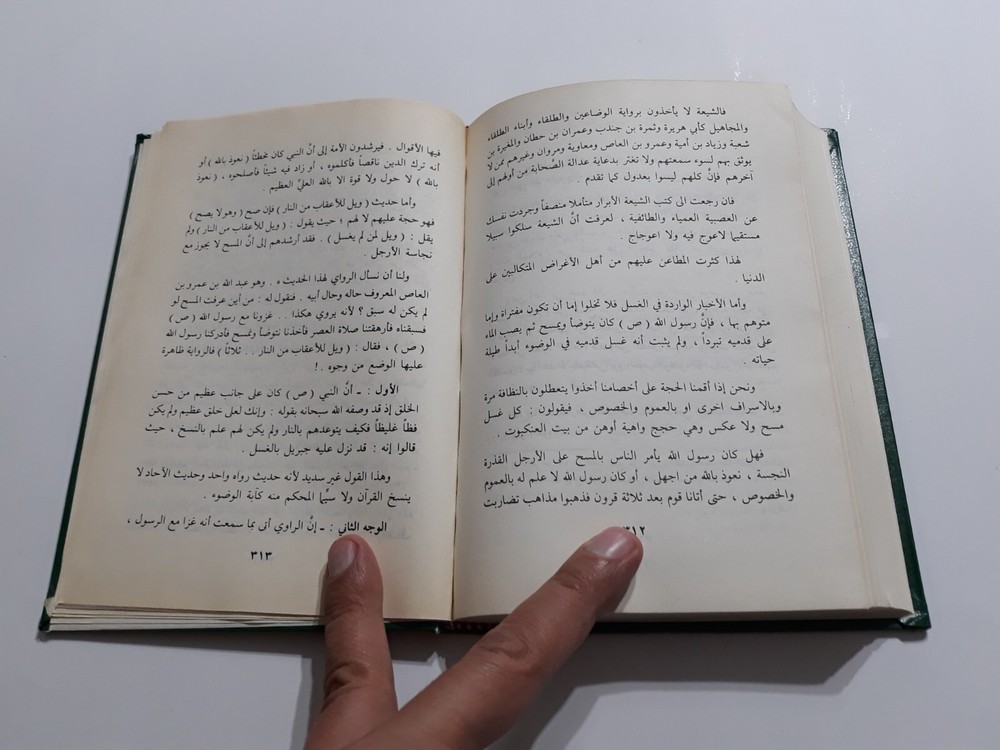 فالشيعة لا يأخذون برواية الوضاعين والطلقاء وأبناء الطلقاء
والمجاهيل كأبي هريرة وثمرة بن جندب وعمران بن حطان والمغيرة بن
شعبة وزياد بن أمية وعمرو بن العاص ومعاوية ومروان وغيرهم ممن لا
يوثق بهم لسوء سمعتهم ولا تغتر بدعاية عدالة الصَّحابة من أولهم إلى
آخرهم فإنَّ كلهم ليسوا بعدول كما تقدم .
فان رجعت الى كتب الشيعة الأبرار متأملا منصفاً وجردت نفسك
عن العصبية العمياء والطائفية ، لعرفت أنَّ الشيعة سلكوا سبيلا
مستقيما لاعوج فيه ولا اعوجاج .
لهذا كثرت المطاعن عليهم من أهل الأغراض المتكالبين على
الدنيا .
وأما الأخبار الواردة في الغسل فلا تخلوا إما أن تكون مفتراة وإما
متوهم بها ، فإنَّ رسول الله ( ص ) كان يتوضأ ويمسح ثم يصب الماء
على قدميه تبرداً ، ولم يثبت أنه غسل قدميه في الوضوء أبداً طيلة
حياته .
ونحن إذا أقمنا الحجة على أخصامنا أخذوا يتعطلون بالنظافة مرة
وبالاسراف اخرى او بالعموم والخصوص ، فيقولون : كل غسل
مسح ولا عكس وهي حجج واهية أوهن من بيت العنكبوت .
فهل كان رسول الله يأمر الناس بالمسح على الأرجل القذرة
النجسة ، نعوذ بالله من اجهل ، أو كان رسول الله لا علم له بالعموم
والخصوص ، حتى أتانا قوم بعد ثلاثة قرون فذهبوا مذاهب تضاربت
٣١٢
فيها الأقوال . فيرشدون الأمة إلى أنَّ النبي كان مخطئاً ( نعوذ بالله ) أو
أنه ترك الدين ناقصاً فأكلموه ، أو زاد فيه شيئاً فأصلحوه ، ( نعوذ
بالله ) لا حول ولا قوة الا بالله العليِّ العظيم .
وأما حديث ( ويل للأعقاب من النار ) فإن صح ( وهو لا يصح )
فهو حجة عليهم لا لهم ؛ حيث يقول : ( ويل للأعقاب من النار ) ولم
يقل : ( ويل لمن لم يغسل ) . فقد أرشدهم إلى أنَّ المسح لا يجوز مع
نجاسة الأرجل .
ولنا أن نسأل الرواي لهذا الحديث ، وهو عبد الله بن عمرو بن
العاص المعروف حاله وحال أبيه . فنقول له : من أين عرفت المسح لو
لم يكن له سبق ؟ لأنه يروي هكذا . . غزونا مع رسول الله ( ص )
فسبقناه فأرهقتنا صلاة العصر فأخذنا نتوضأ ونمسح فأدركنا رسول الله
( ص ) ، فقال : ( ويل للأعقاب من النار . . ثلاثاً ) فالرواية ظاهرة
عليها الوضع من وجوه . !
الأول : ـ أنَّ النبي ( ص ) كان على جانب عظيم من حسن
الخلق إذ قد وصفه الله سبحانه بقوله : وإنك لعلى خلق عظيم ولم يكن
فظاً غليظاً فكيف يتوعدهم بالنار ولم يكن لهم علم بالنسخ ، حيث
قالوا إنه : قد نزل عليه جبريل بالغسل .
وهذا القول غير سديد لأنه حديث رواه واحد وحديث الآحاد لا
ينسخ القرآن ولا سيَّما المحكم منه كآية الوضوء .
الوجه الثاني : ـ إنَّ الراوي أتى بما سمعت أنه غزا مع الرسول ،
٣١٣